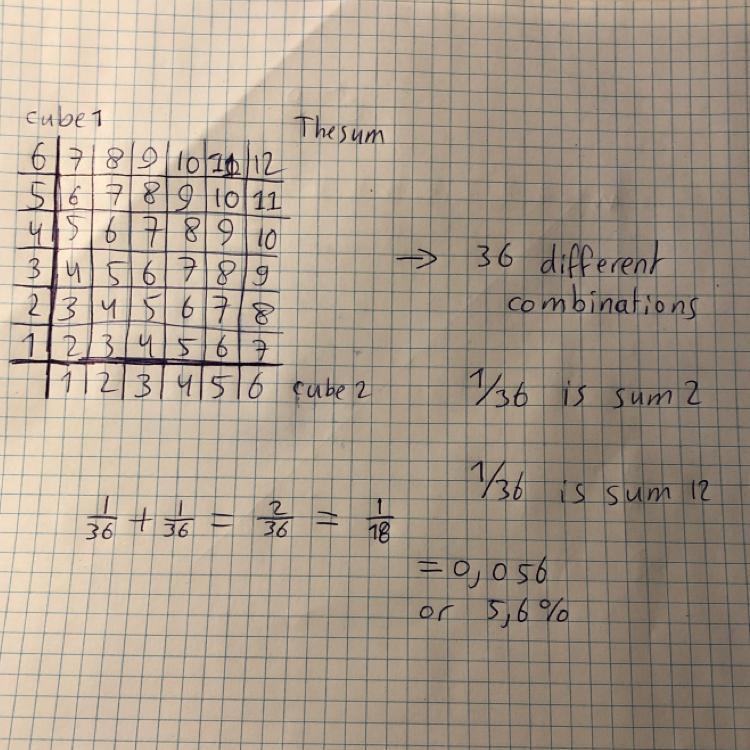 cube 1
The sum
6 7 8 9 10 11 12
5 6 7 8 9 10 11
4 5 6 7 8 9 10
3 4 5 6 7 8 9
2 3 4 5 6 7 8
1 2 3 4 5 6 7
1 2 3 4 5 6 cube 2
→ 36 different
combinations
1/36 is sum 2
1/36 is sum 12
1/36 + 1/36 = 2/36 = 1/18
= 0,056
or 5,6%